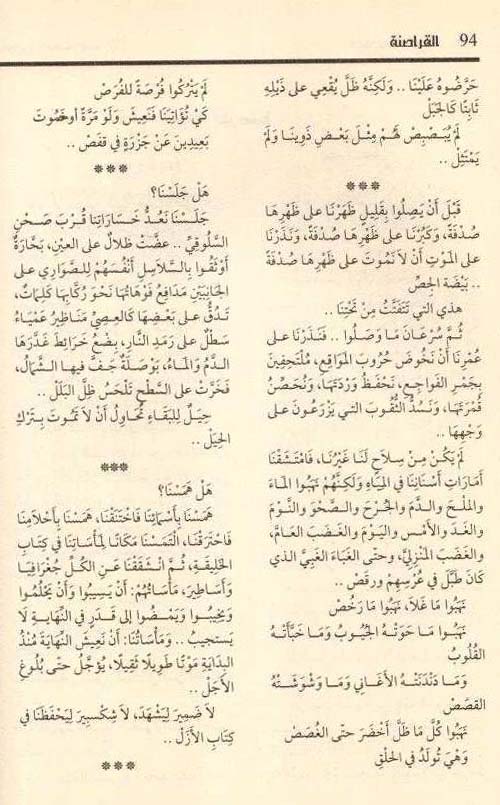 94 القراصنة
حَرَّضُوهُ عَلَيْنَا .. وَلَكِنَّهُ ظَلَّ يُقْعِي عَلَى ذَيْلِهِ
ثَابِتًا كَالجَبَلْ
لَمْ يُبَصْبِصْ لَهُمْ مِثْلَ بَعْضِ ذَوِينَا وَلَمْ
يَمْتَثِلْ ..
***
قَبْلَ أَنْ يَصِلُوا بِقَلِيلٍ ظَهَرْنَا على ظَهْرِهَا
صُدْفَةً، وَكَبُرْنَا على ظَهْرِهَا صُدْفَةً، وَنَذَرْنَا
على المَوْتِ أَنْ لاَ نَمُوتَ على ظَهْرِهَا صُدْفَةً
.. بَيْضَةِ الجِصِّ
هذي التي تَتَفَتَّتُ مِنْ تَحْتِنَا ..
ثُمَّ سُرْعَانَ مَا وَصَلُوا .. فَنَذَرْنَا على
عُمرِنَا أَنْ نَخُوضَ حُرُوبَ المَوَاقِعِ، مُلْتَحِفِينَ
بِجَمْرِ الفَوَاجِعِ، نَحْفَظُ وَرْدَتَهَا، وَنُحَصِّنُ
قُمْرَتَهَا، وَنَسُدُّ الثُّقُوبَ التي يَزْرَعُونَ على
وَجْهِهَا ..
لَمْ يَكُنْ مِنْ سِلاَحٍ لَنَا غَيْرُنَا، فَامْتَشَقْنَا
أَمَارَاتِ أَسْنَانِنَا في المِيَاهِ وَلَكِنَّهُمْ نَهَبُوا المَاءَ
وَالمِلْحَ وَالدَّمَ وَالجُرْحَ وَالصَّحْوَ وَالنَّوْمَ
وَالغَدَ وَالأَمْسَ وَاليَوْمَ وَالغَضَبَ العَامَّ،
وَالغَضَبَ المَنْزِليَّ، وَحتى الغَبَاءَ الغَبِيَّ الذي
كَانَ طَبَّلَ في عُرْسِهِمْ وَرَقَصْ ..
نَهَبُوا مَا غَلاَ، نَهَبُوا مَا رَخُصْ
نَهَبُوا مَا حَوَتْهُ الجُيُوبُ وَمَا خَبَّأَتْهُ
القُلُوبُ
وَمَا دَنْدَنَتْهُ الأَغَاني وَمَا وَشْوَشَتْهُ
القَصَصْ
نَهَبُوا كُلَّ مَا ظَلَّ أَخْضَرَ حتى الغُصَصْ
وَهْيَ تُولَدُ في الحَلْقِ
لَمْ يَتْرُكُوا فُرْصَةً لِلفُرَصْ
كَيْ تُؤَاتِيَنَا فَنَعِيشَ وَلَوْ مَرَّةً أو نَمُوتَ
بَعِيدِينَ عَنْ جَزْرَةٍ في قَفَصْ ..
***
هَلْ جَلَسْنَا؟
جَلَسْنَا نَعُدُّ خَسَارَاتِنا قُرْبَ صَحْنِ
السَّلُوقِيِّ .. عَضَّتْ ظلاَلٌ على العَيْنِ، بَحَّارَةٌ
أَوْثَقُوا بِالسَّلاَسِلِ أَنْفُسَهُمْ لِلصَّوَارِي على
الجَانِبَيْنِ مَدَافِعُ فَوْهَاتُهَا نَحْوَ رُكَّابِهَا كَلِمَاتٌ،
تَدُقُّ على بَعْضِهَا كَالعِصِيِّ مَنَاظِيرُ عَمْيَاءُ
سَطْلٌ على رَمَدِ النَّارِ، بِضْعُ خَرَائِطَ غَدَّرَهَا
الدَّمُ وَالمَاءُ، بَوْصَلَةٌ جَفَّ فيها الشَّمَالُ،
فَخَرَّتْ على السَّطْحِ تَلْحَسُ ظِلَّ البَلَلْ ..
حِيَلٌ لِلبَقَاءِ تُحَاوِلُ أَنْ لاَ تَمُوتَ بِتَرْكِ
الحِيَلْ ..
***
هَلْ هَمَسْنَا؟
هَمَسْنَا بِأَسْمَائِنَا فَاخْتَنَقْنَا، هَمَسْنَا بِأَحْلاَمِنَا
فَاحْتَرَقْنَا، التَمَسْنَا مَكَانًا لِمَأْسَاتِنَا في كِتَابِ
الخَلِيقَةِ، ثُمَّ انْشَقَقْنَا عَنِ الكُلِّ جُغْرَافِيَا
وَأَسَاطِيرَ، مَأْسَاتُهُمْ: أَنْ يَسِيبُوا وَأَنْ يَحْلُمُوا
وَيَخِيبُوا وَيَمْضُوا إلى قَدَرٍ في النِّهَايَةِ لاَ
يَستجِيبُ .. وَمَأْسَاتُنَا: أَنْ نَعِيشَ النِّهَايَةَ مُنْذُ
البِدَايَةِ مَوْتًا طَوِيلًا ثَقِيلًا، يُؤَجَّلُ حتى بُلُوغِ
الأَجَلْ ..
لاَ ضَمِيرَ لِيَشْهَدَ، لاَ شِكْسبِيرَ لِيَحْفَظَنَا في
كِتَابِ الأَزَلْ ..
***